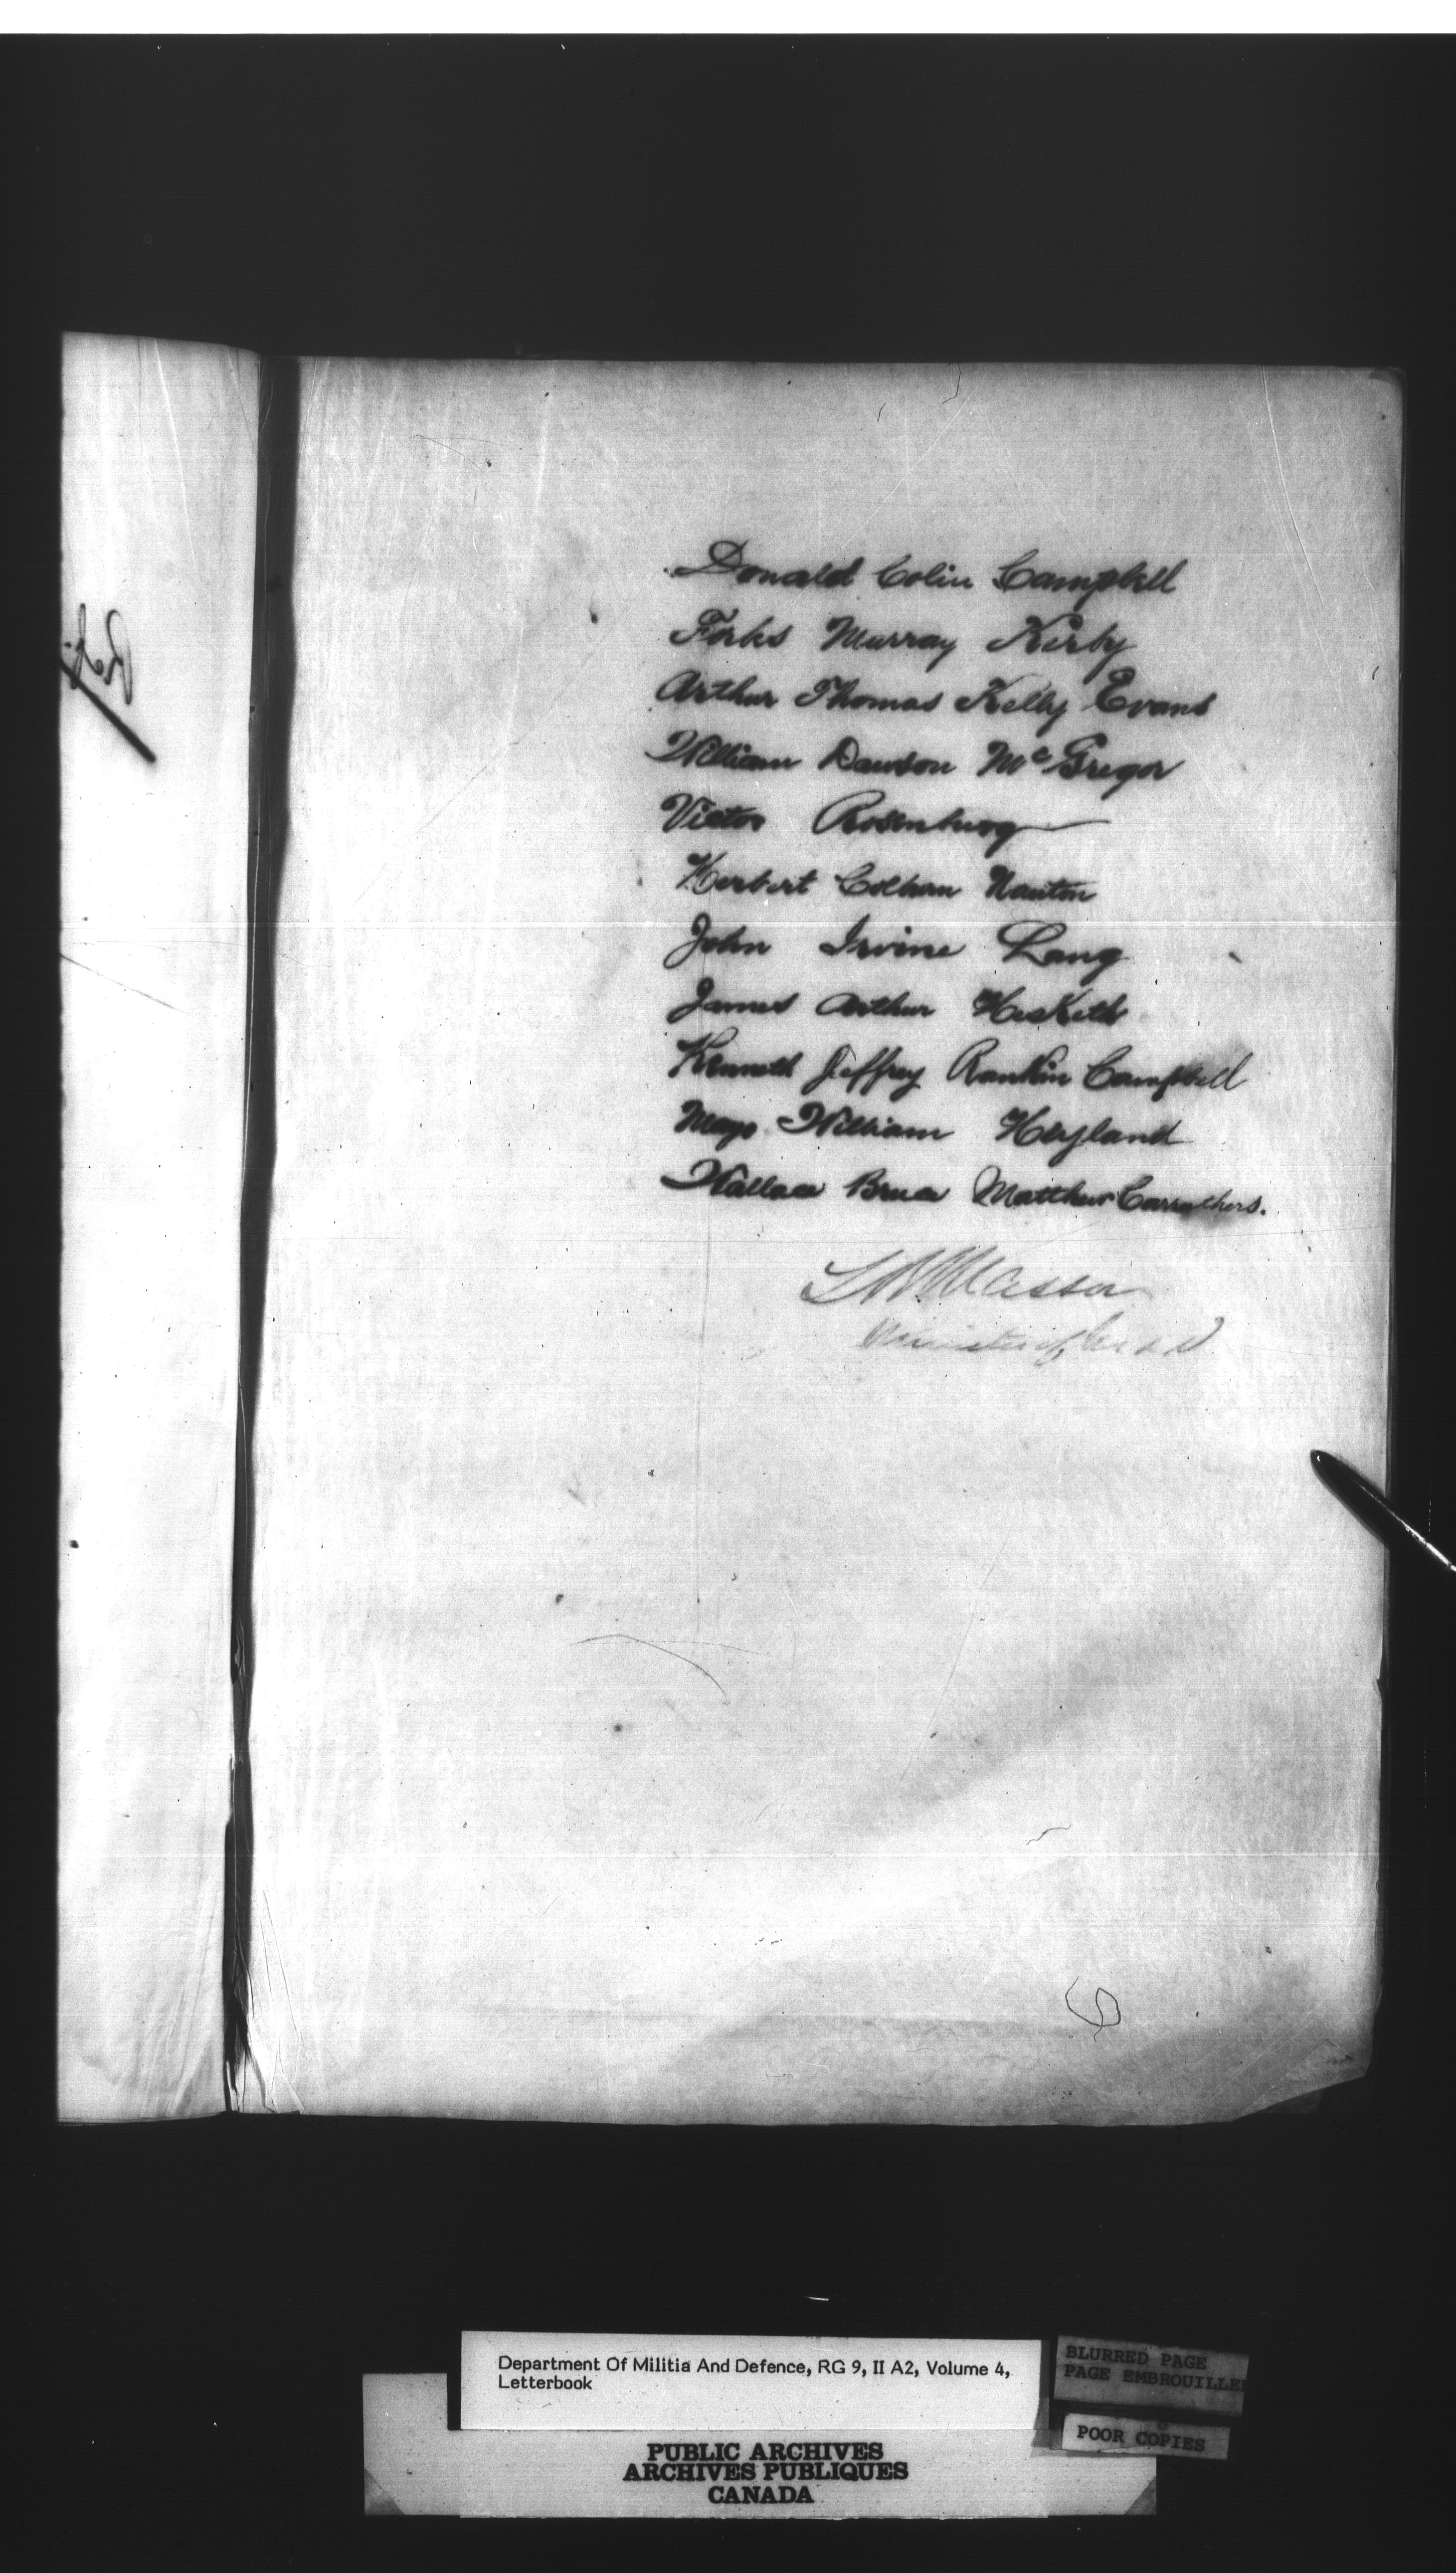 Donald Colin Campbell
Forbes Murray Kirby
Arthur Thomas Kelly Evans
William Dawson McGregor
Victor Rosenburg
Herbert Colham Nanton
John Irvine Lang
James Arthur Hesketh
Kenneth Jeffrey Rankin Campbell
Mayo William Heyland
Wallace Bruce Matthew Carruthers.
LFR Masson
Minister of M & D
Department Of Militia And Defence, RG 9, II A2, Volume 4,
Letterbook
BLURRED PAGE
PAGE EMBROUILLEE
POOR COPIES
PUBLIC ARCHIVES
ARCHIVES PUBLIQUES
CANADA